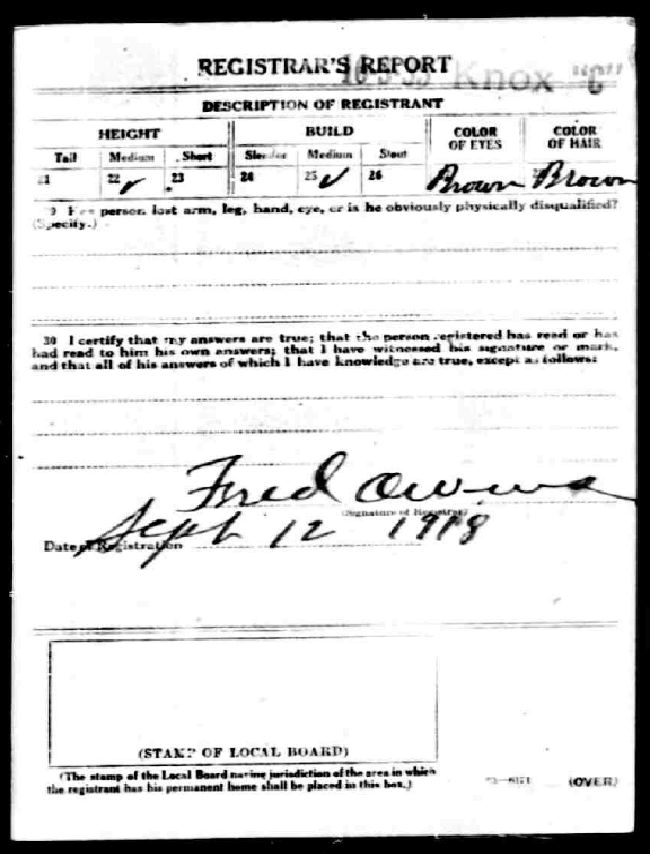 REGISTRAR'S REPORT
Knox "C"
DESCRIPTION OF REGISTRANT
HEIGHT BUILD COLOR OF EYES COLOR OF HAIR
Tall Medium Short Slender Medium Stout
21 22 ✓ 23 24 25 ✓ 26 Brown Brown
9 Has person lost arm, leg, hand, eye, or is he obviously physically disqualified?
(Specify.)
30 I certify that my answers are true; that the person registered has read or has
had read to him his own answers; that I have witnessed his signature or mark,
and that all of his answers of which I have knowledge are true, except as follows:
Fred Owens
(Signature of Registrar)
Date of Registration Sept 12 1918
(STAMP OF LOCAL BOARD)
(The stamp of the Local Board having jurisdiction of the area in which
the registrant has his permanent home shall be placed in this box.)
(OVER)